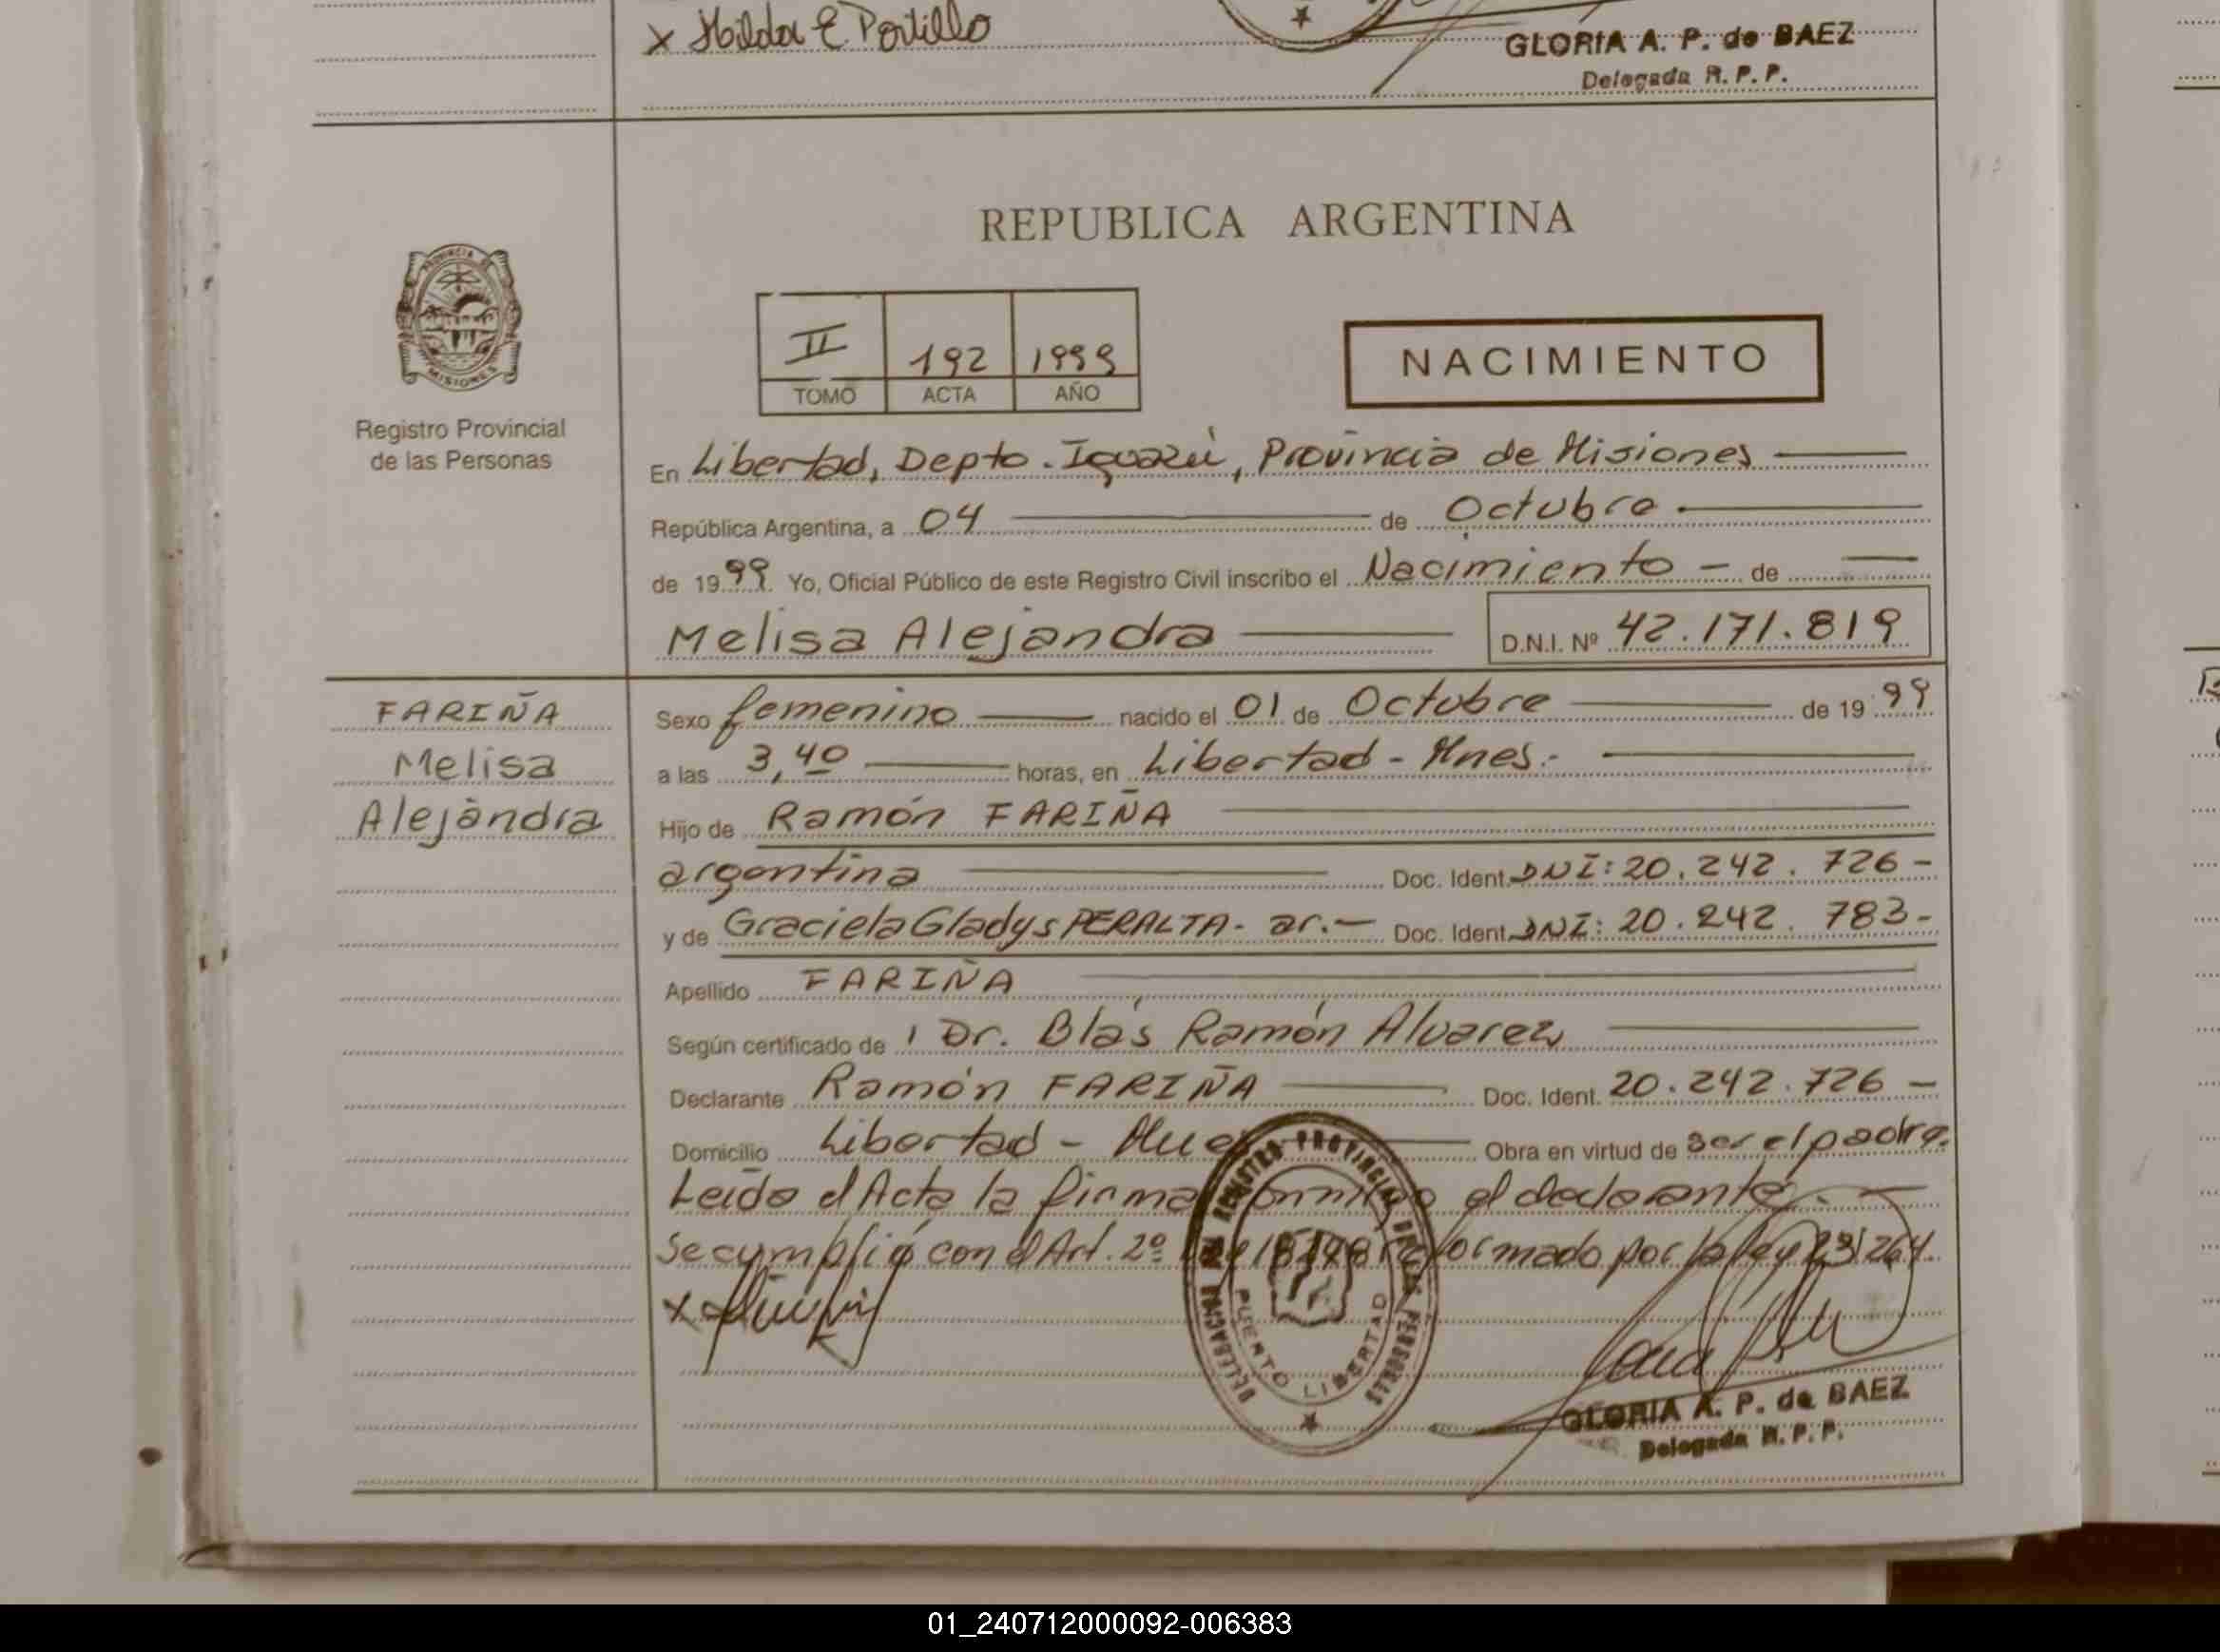 x Hilda E Portillo
GLORIA A. P. de BAEZ
Delegada R. P. P.
REPUBLICA ARGENTINA
PROVINCIA DE
MISIONES
Registro Provincial
de las Personas
II 192 1999
TOMO ACTA AÑO
NACIMIENTO
En Libertad, Depto. Iguazú, Provincia de Misiones
República Argentina, a 04 de Octubre
de 1999. Yo, Oficial Público de este Registro Civil inscribo el Nacimiento - de
Melisa Alejandra D.N.I. Nº 42.171.819
FARIÑA
Melisa
Alejandra
Sexo femenino nacido el 01 de Octubre de 1999
a las 3,40 horas, en Libertad - Mnes.-
Hijo de Ramón FARIÑA
argentina Doc. Ident. DNI: 20.242.726 -
y de Graciela Gladys PERALTA - ar.- Doc. Ident. DNI: 20.242.783-
Apellido FARIÑA
Según certificado de Dr. Blás Ramón Alvarez
Declarante Ramón FARIÑA Doc. Ident. 20.242.726 -
Domicilio Libertad - Mnes Obra en virtud de ser el padre.
Leída el Acta la firma conmigo el declarante.-
Se cumplió con el Art. 2º Ley 18248 reformado por la ley 23264.
x
DELEGACION DEL REGISTRO PROVINCIAL DE LAS PERSONAS
PUERTO LIBERTAD
GLORIA A. P. de BAEZ
Delegada R. P. P.
01_240712000092-006383